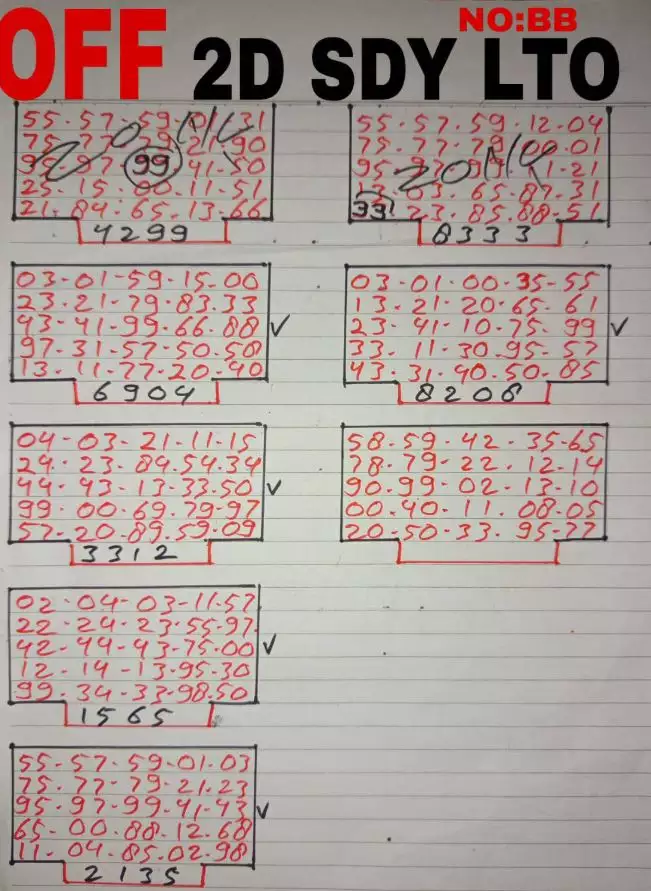 NO:BB
OFF 2D SDY LTO
55-57-59-01-31
75-77-79-21-90
95-97-99-41-50
25-15-00-11-51
21-84-65-13-66
4299
03-01-59-15-00
23-21-79-83-33
43-41-99-66-88
97-31-57-50-58
13-11-77-20-40
6904
04-03-21-11-15
24-23-84-54-34
44-43-13-33-50
99-00-69-79-97
57-20-89-59-09
3312
02-04-03-11-57
22-24-23-55-97
42-44-43-75-00
12-14-13-95-30
99-34-33-98-50
1565
55-57-59-01-03
75-77-79-21-23
95-97-99-41-43
65-00-88-12-68
11-04-85-02-98
2135
55-57-59-12-04
75-77-79-00-01
95-97-99-11-21
13-03-65-87-31
33-23-85-88-51
8333
03-01-00-35-55
13-21-20-65-61
23-41-10-75-99
33-11-30-95-57
43-31-40-50-85
8206
58-59-42-35-65
78-79-22-12-14
90-99-02-13-10
00-40-11-08-05
20-50-33-95-77